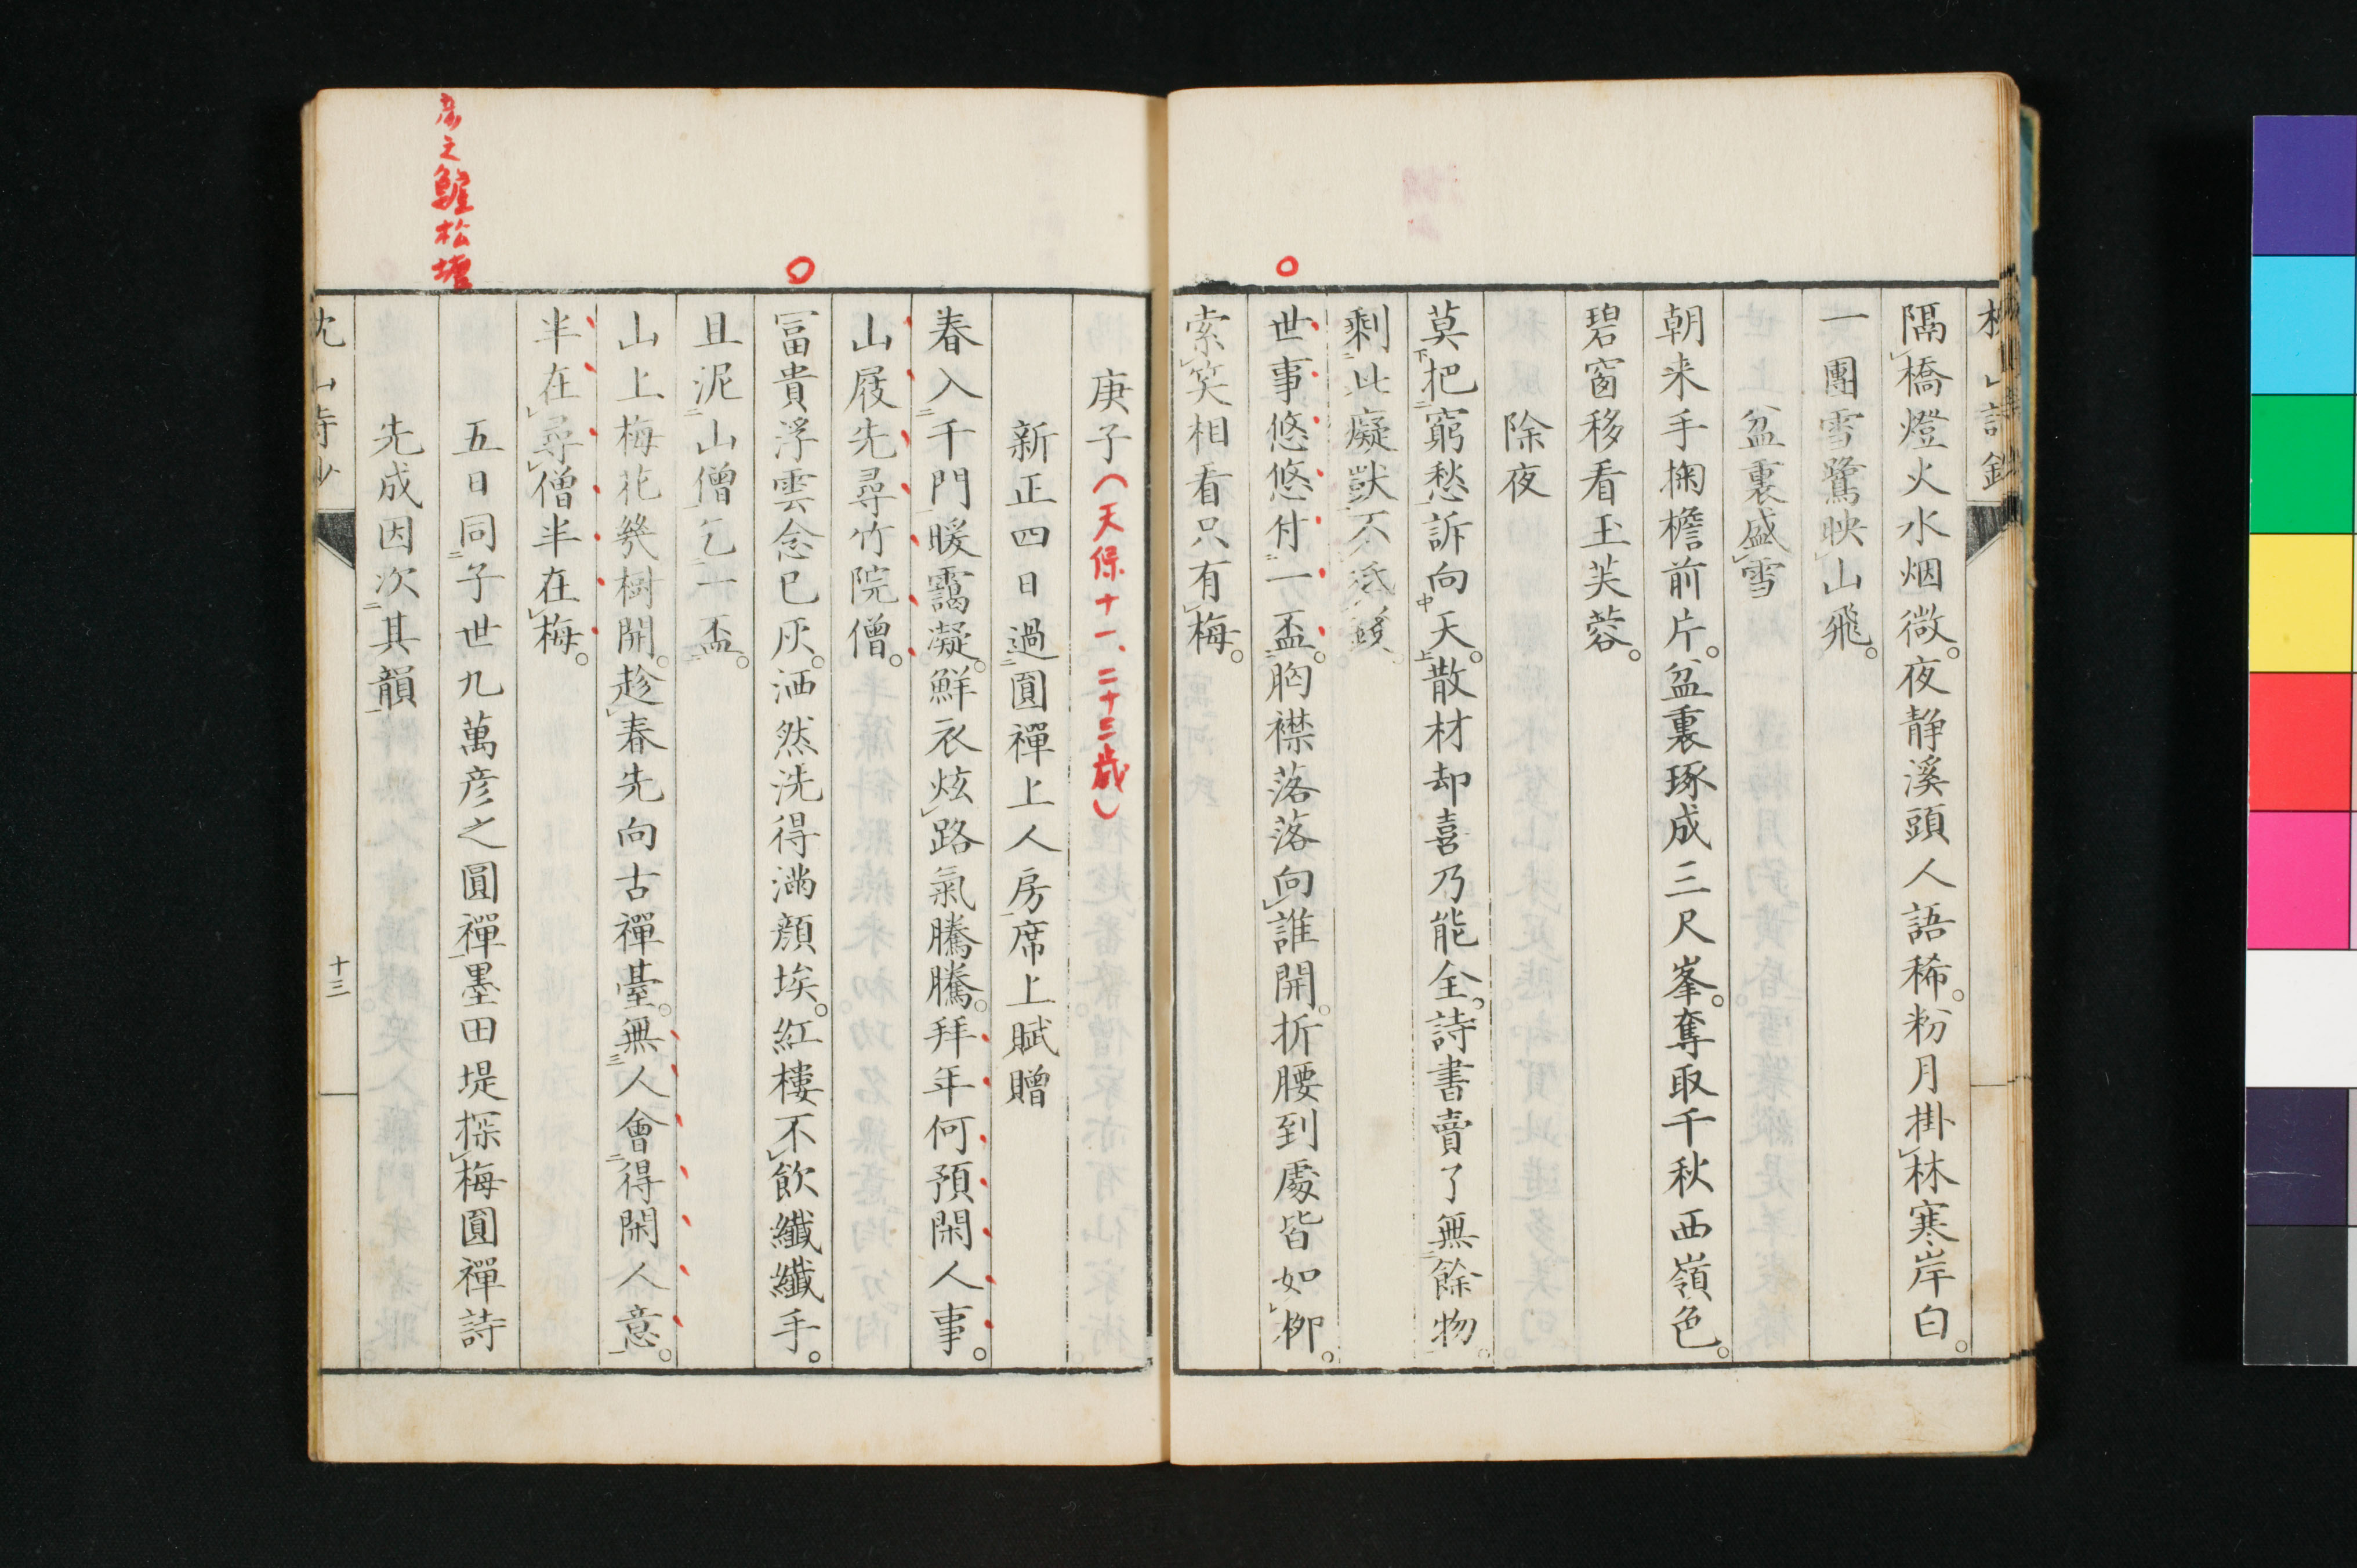 隔橋燈火水烟微。夜静溪頭人語稀。粉月掛林寒岸白。
一團雪鷺映山飛。
盆裏盛雪
朝来手掬檐前片。盆裏琢成三尺峯。奪取千秋西嶺色。
碧窗移看玉芙蓉。
除夜
莫把窮愁訴向天。散材却喜乃能全。詩書賣了無餘物。
剩此癡獃不
世事悠悠付一盃。胸襟落落向誰開。折腰到處皆如柳。
索笑相看只有梅。
庚子(天保十一、二十三歳)
新正四日過圓禪上人房席上賦贈
春入千門暖靄凝。鮮衣炫路氣騰騰。拜年何預閑人事。
山屐先尋竹院僧。
冨貴浮雲念已灰。洒然洗得滿顔埃。紅樓不飲纖纖手。
且泥山僧乞一盃。
山上梅花幾樹開。趁春先向古禪臺。無人會得閑人意。
半在尋僧半在梅。
彦之鱸松塘
五日同子世九萬彦之圓禪墨田堤探梅圓禪詩
先成因次其韻
十三